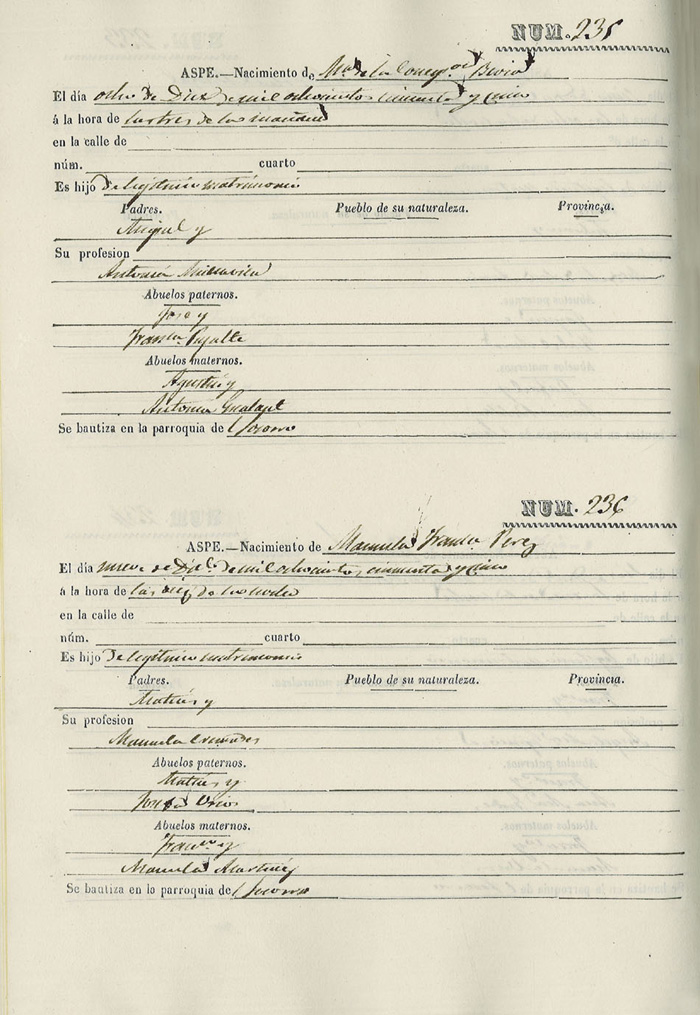 NUM. 235
ASPE.—Nacimiento de Mª de la Concepon
El día ocho de Dize de mil ochocientos cincuenta y cinco
á la hora de las tres de la mañana
en la calle de
núm. cuarto
Es hijo de legitimo matrimonio
Padres. Pueblo de su naturaleza. Provincia.
Miguel y
Su profesion
Antonia
Abuelos paternos.
Jose y
Franca Pujalte
Abuelos maternos.
Agustin y
Antonia
Se bautiza en la parroquia de Socorro
NUM. 236
ASPE.—Nacimiento de Manuela Franca Perez
El día nueve de Dize de mil ochocientos cincuenta y cinco
á la hora de las diez de la noche
en la calle de
núm. cuarto
Es hijo de legitimo matrimonio
Padres. Pueblo de su naturaleza. Provincia.
Matias y
Su profesion
Manuela
Abuelos paternos.
Matias y
Josefa
Abuelos maternos.
Franco y
Manuela Martinez
Se bautiza en la parroquia de Socorro